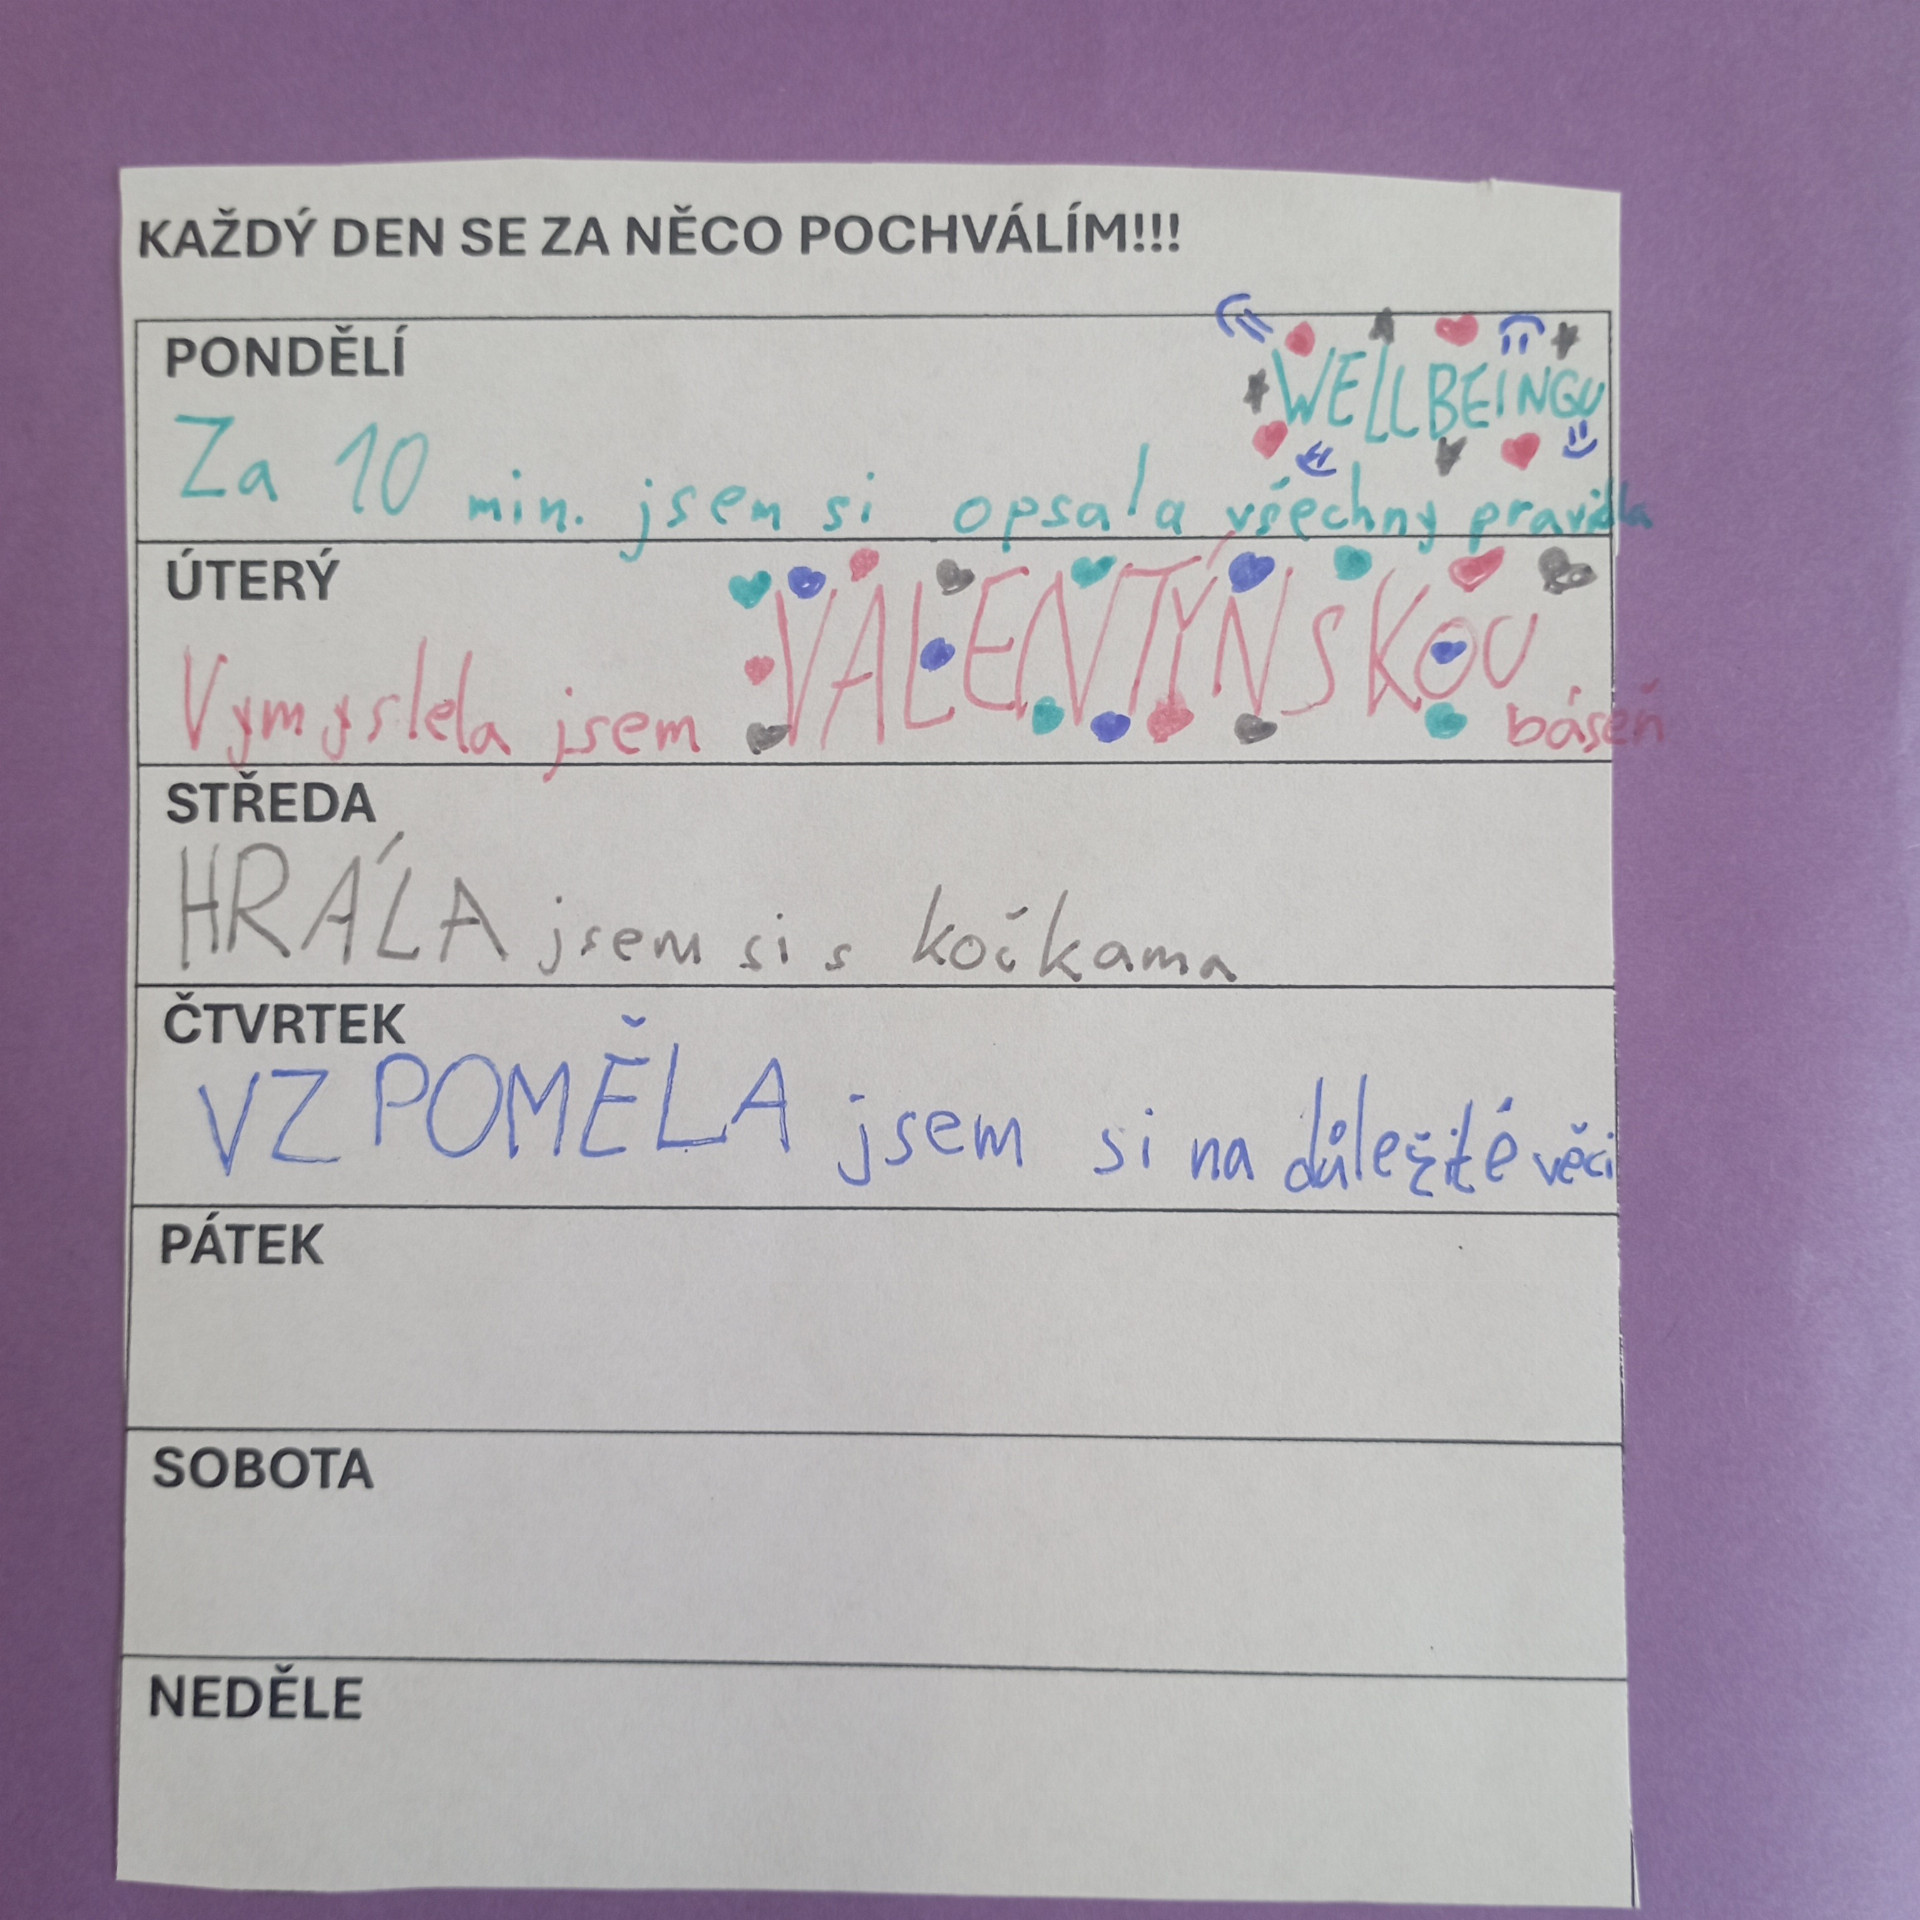 KAŽDÝ DEN SE ZA NĚCO POCHVÁLÍM!!!
PONDĚLÍ
WELLBEINGU
Za 10 min. jsem si opsala všechny pravidla
ÚTERÝ
Vymyslela jsem VALENTÝNSKOU báseň
STŘEDA
HRÁLA jsem si s kočkama
ČTVRTEK
VZPOMĚLA jsem si na důležité věci
PÁTEK
SOBOTA
NEDĚLE